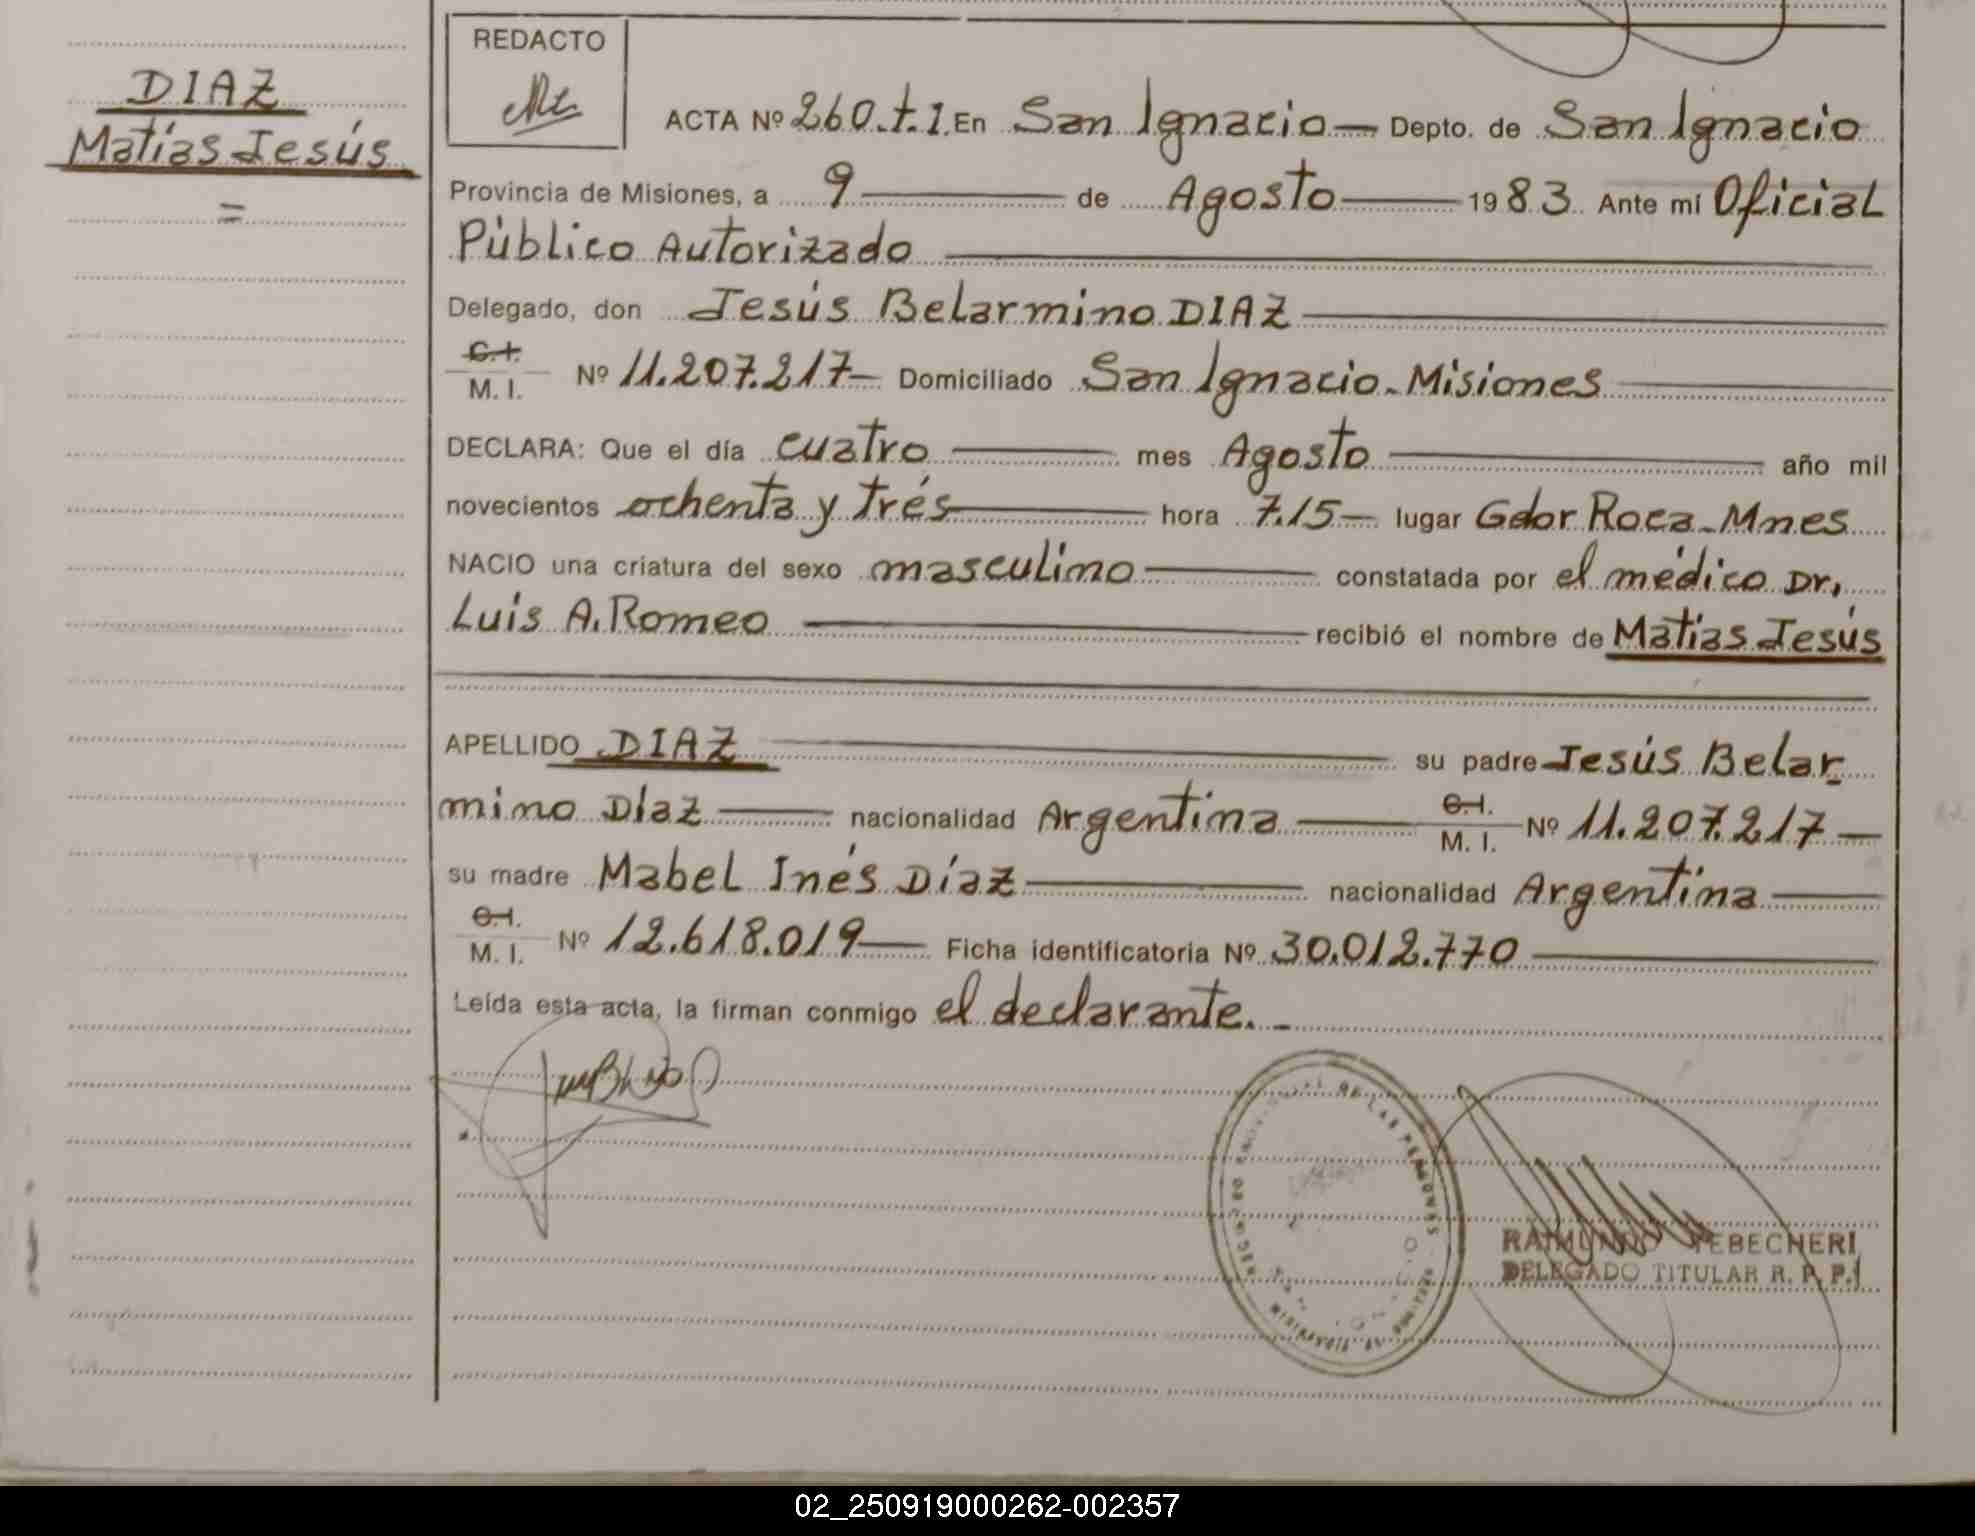 DIAZ
Matías Jesús
=
REDACTO
ACTA Nº 260.t.1. En San Ignacio — Depto. de San Ignacio
Provincia de Misiones, a 9 — de Agosto — 1983. Ante mí Oficial
Público Autorizado
Delegado, don Jesús Belarmino DIAZ
C.I.
M. I. Nº 11.207.217 — Domiciliado San Ignacio - Misiones
DECLARA: Que el día cuatro — mes Agosto — año mil
novecientos ochenta y trés — hora 7.15 — lugar Gdor Roca - Mnes
NACIO una criatura del sexo masculino — constatada por el médico Dr.
Luis A. Romeo — recibió el nombre de Matías Jesús
APELLIDO DIAZ — su padre Jesús Belar-
mino Díaz — nacionalidad Argentina — C.I. M. I. Nº 11.207.217 —
su madre Mabel Inés Díaz — nacionalidad Argentina —
C.I.
M. I. Nº 12.618.019 — Ficha identificatoria Nº 30.012.770 —
Leída esta acta, la firman conmigo el declarante. -
DE LAS PERSONAS
RAIMUNDO YEBECHERI
DELEGADO TITULAR R. P. P.
02_250919000262-002357